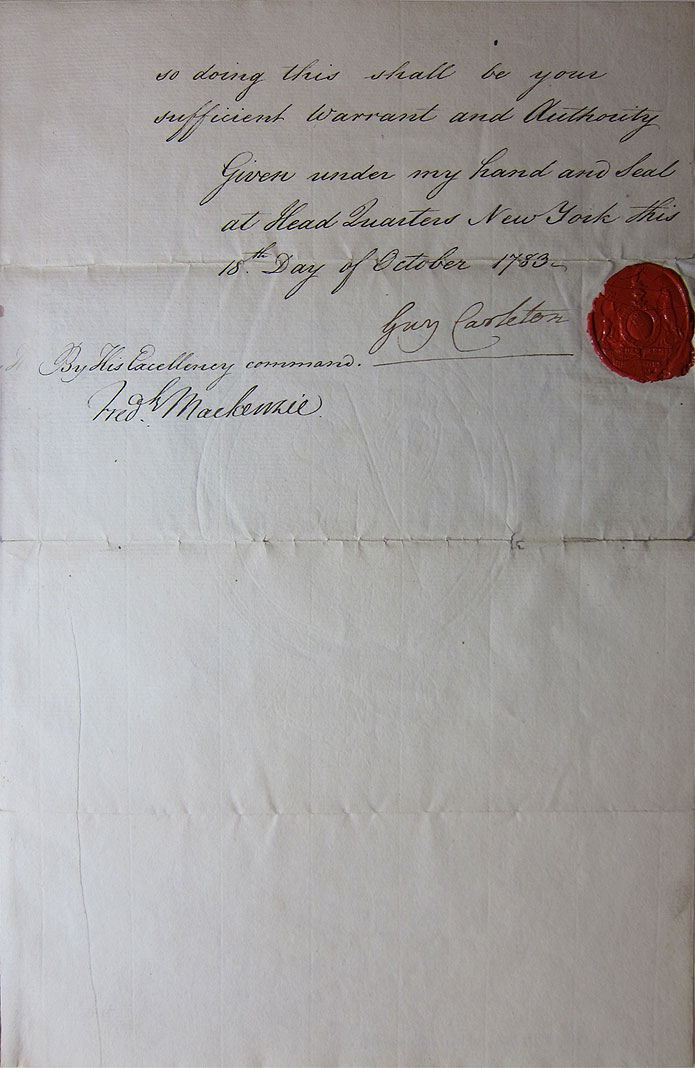 so doing this shall be your
sufficient Warrant and Authority
Given under my hand and Seal
at Head Quarters New York this
18th. Day of October 1783
Guy Carleton
By His Excellency command.
Fredk. Mackenzie